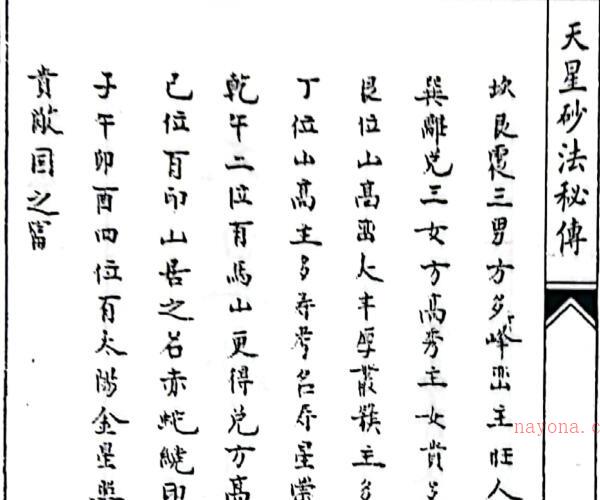 天星砂法秘傳
坎艮震三男方多峰巒主旺人
巽離兌三女方高秀主女貴多
艮位山高巒大丰厚叢簇主多
丁位山高主多寿考名寿星崇
乾午二位有馬山更得兌方高
己位有印山居之名赤蛇繞印
子午卯酉四位有太陽金星
貴敵国之富
nayona.c